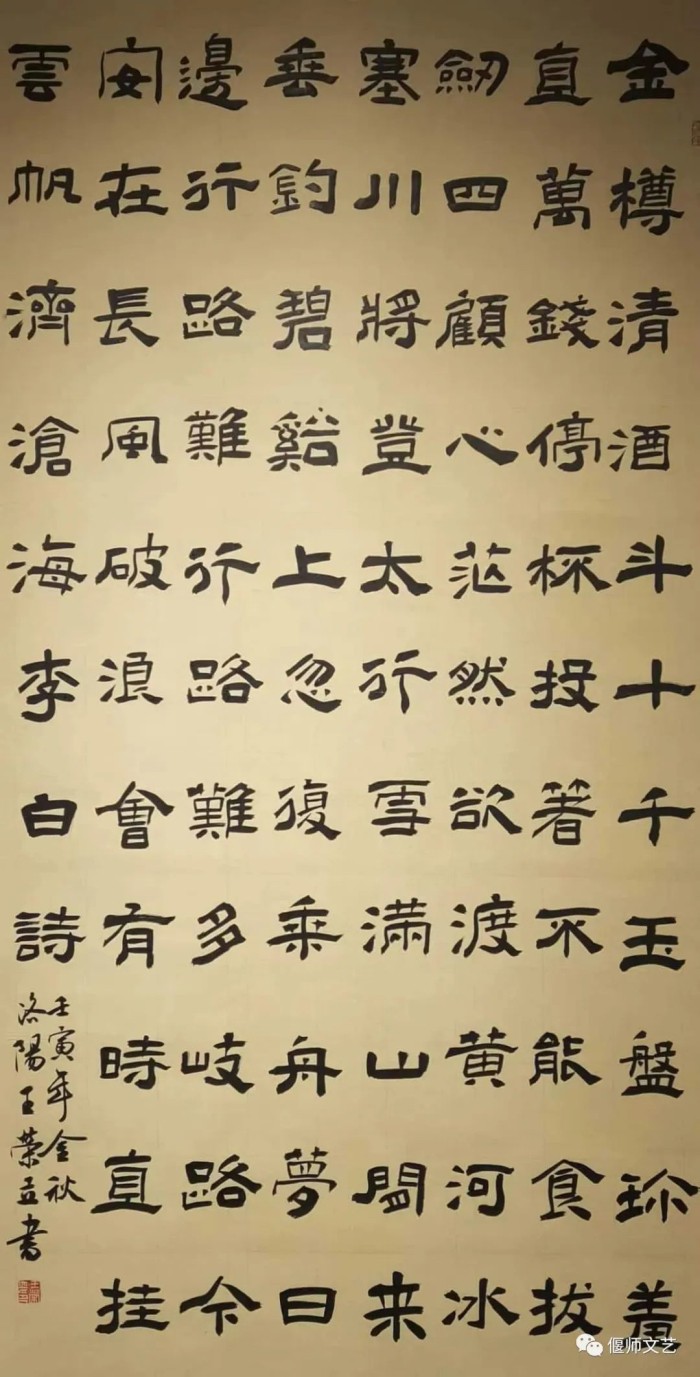 金樽清酒斗十千玉盤珎羞
直萬錢停杯投著不能食拔
劒四顧心茫然欲渡黄河冰
塞川將登太行雪滿山閒来
垂釣碧谿上忽復乘舟夢日
邊行路難行路難多岐路今
安在長風破浪會有時直挂
雲帆濟滄海李白詩
壬寅年金秋
洛陽王榮立書
偃师文艺